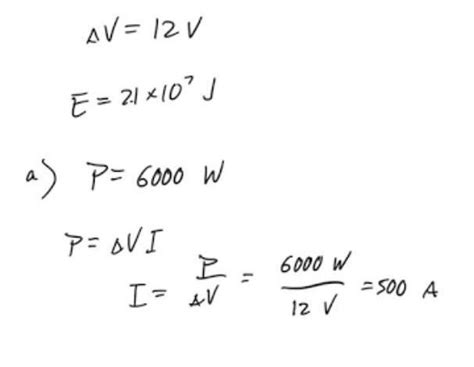 ΔV = 12 V
E = 2.1 ×10⁷ J
a) P = 6000 W
P = ΔV I
I = P/ΔV = 6000 W/12 V = 500 A